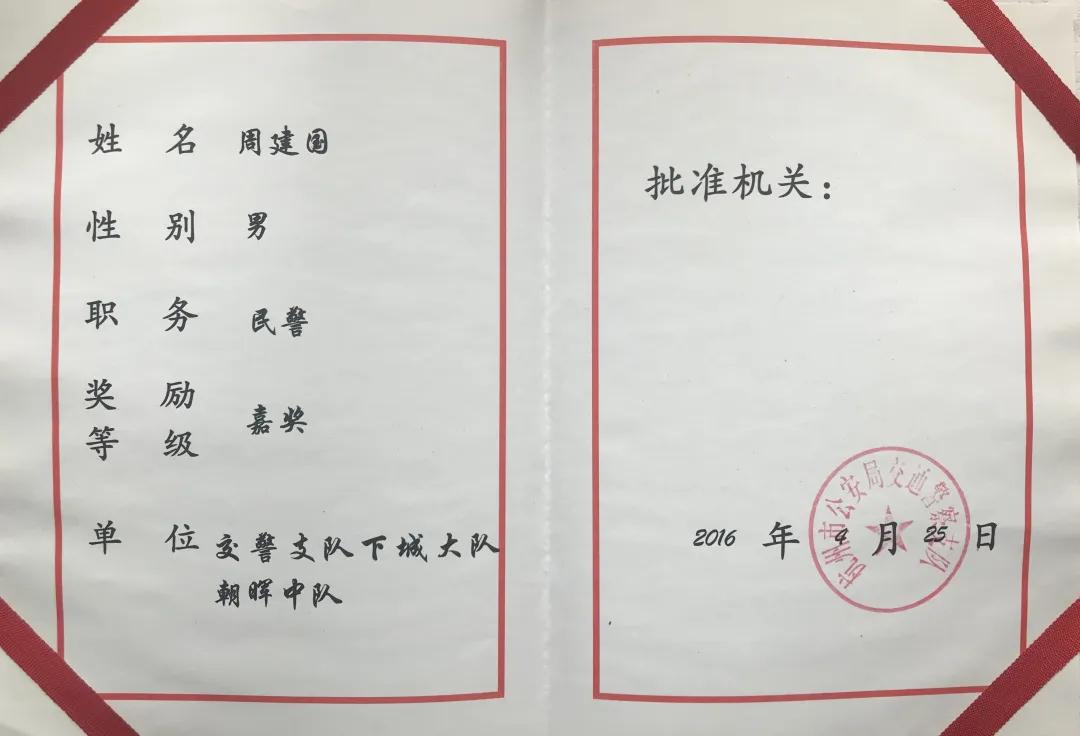 姓名 周建国
性别 男
职务 民警
奖励
等级 嘉奖
单位 交警支队下城大队
朝晖中队
批准机关：
杭州市公安局交通警察支队
2016 年 4 月 25 日